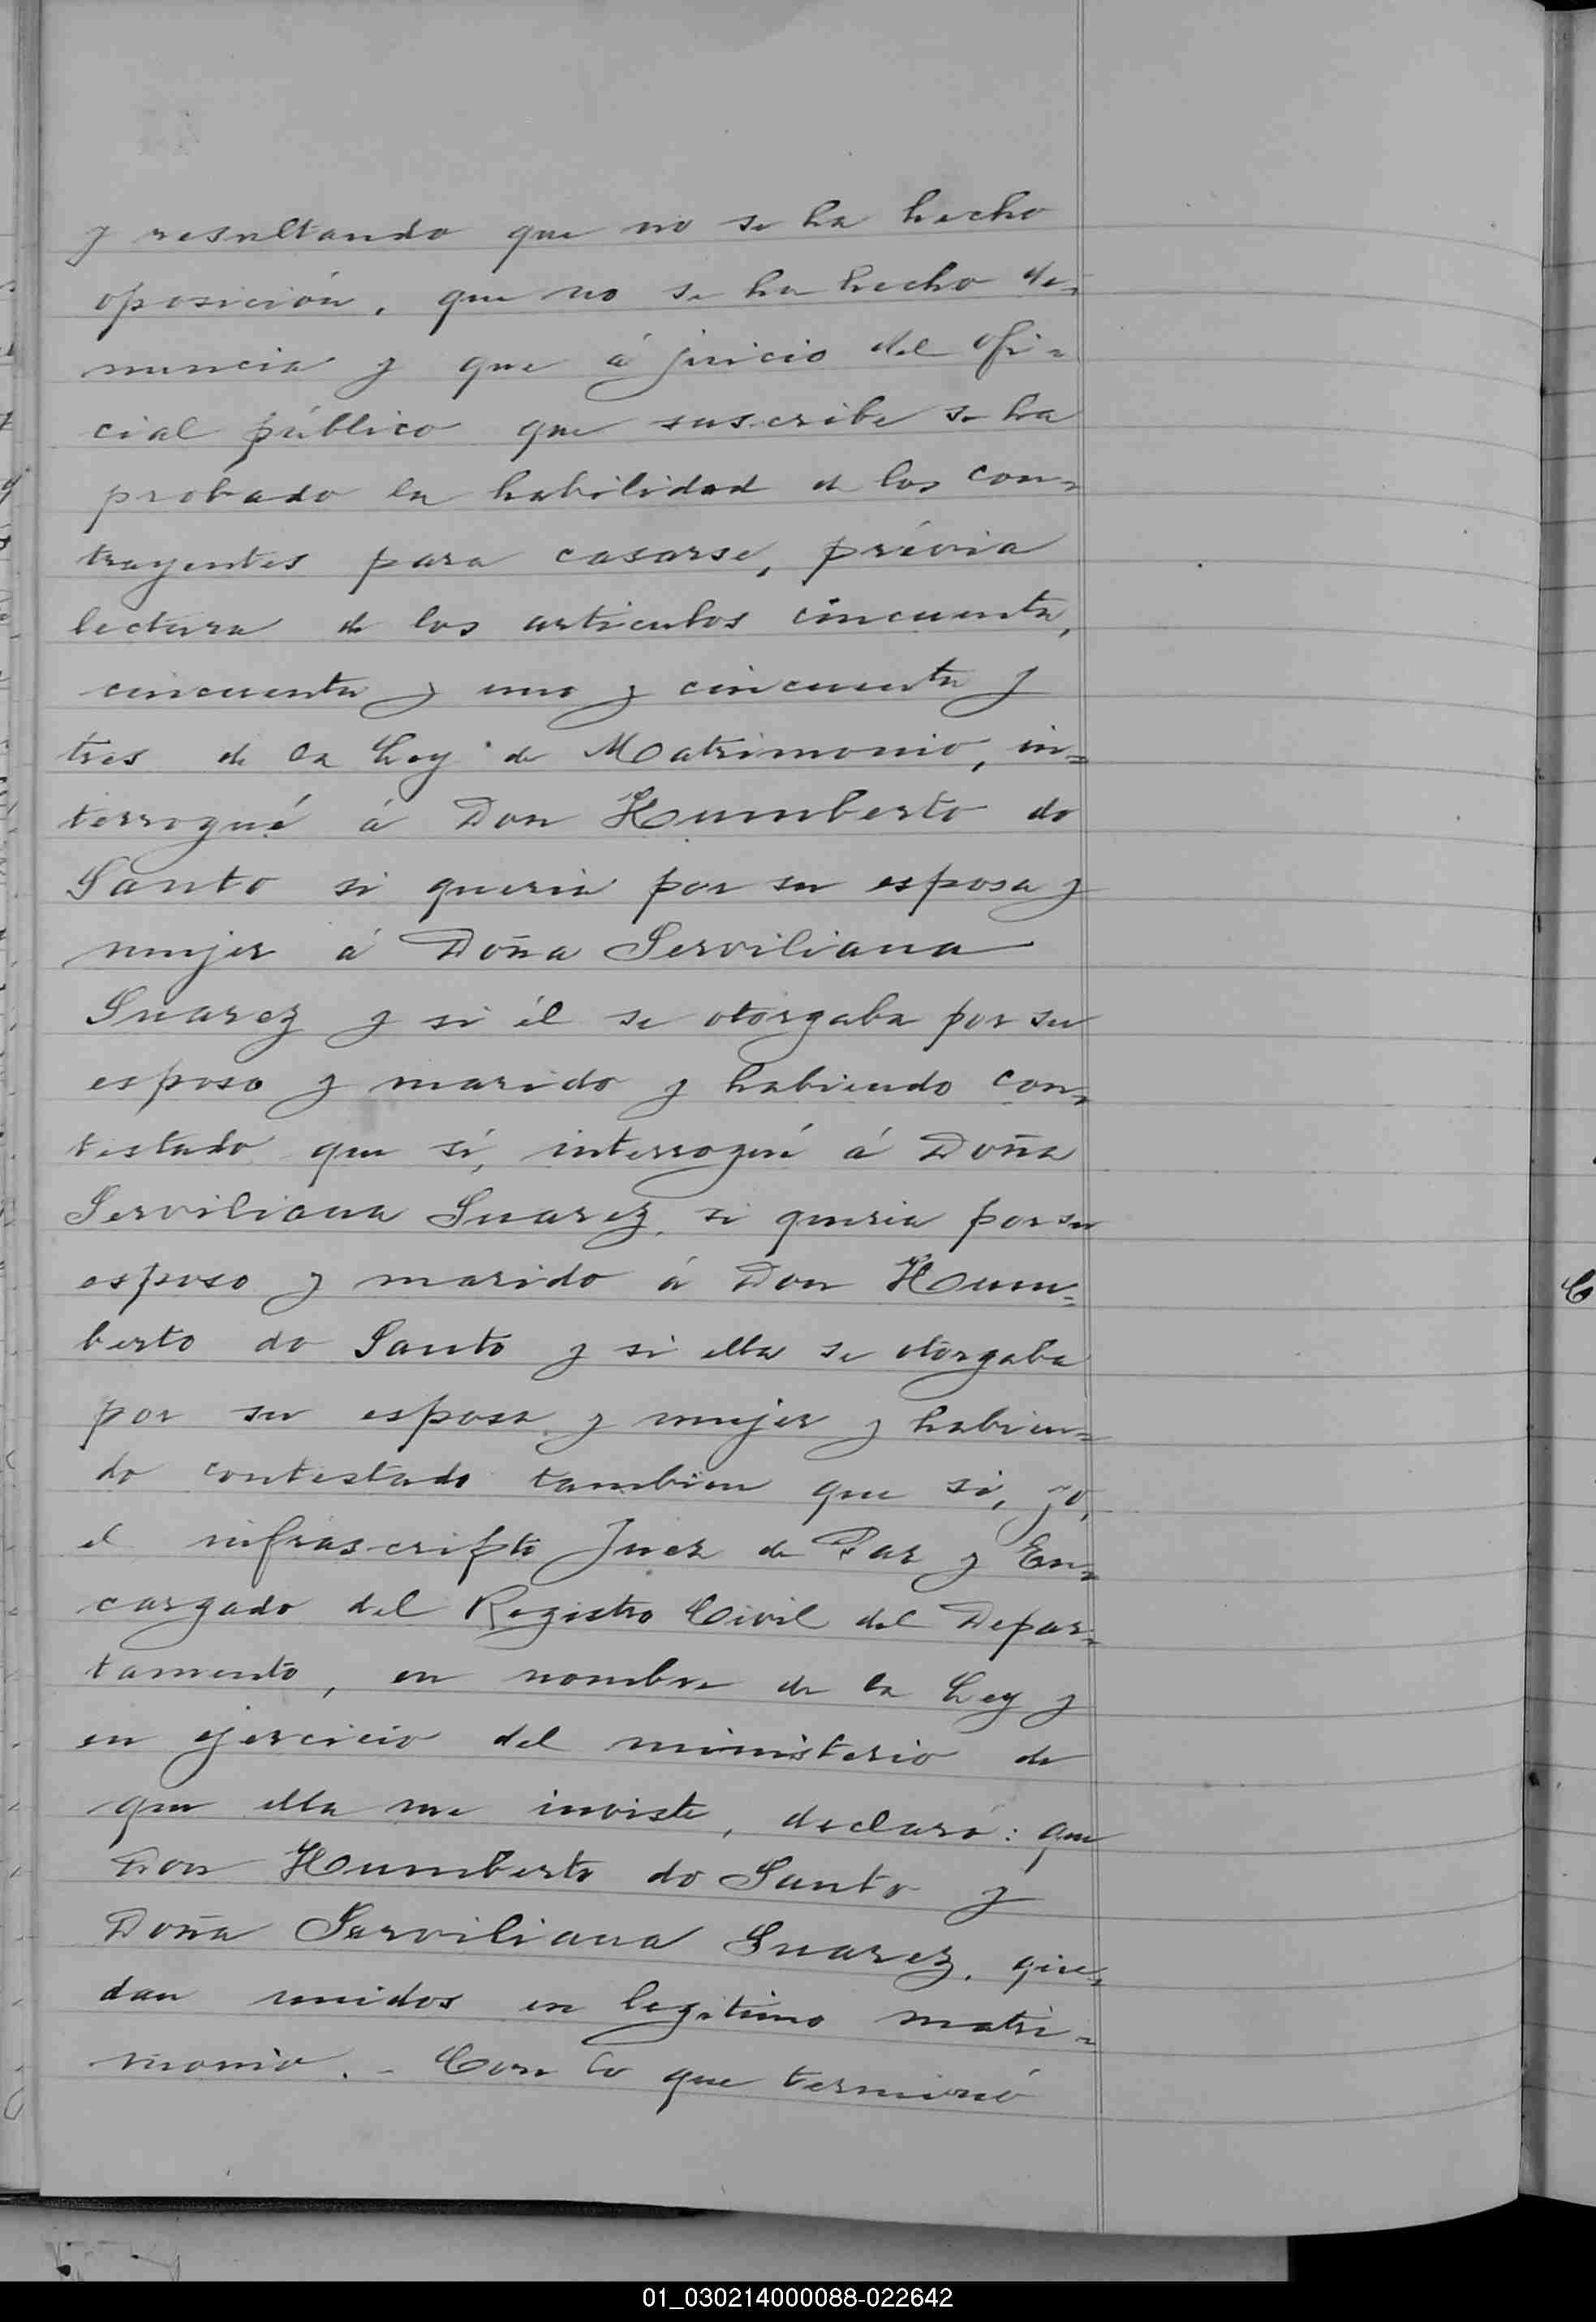 y resultando que no se ha hecho
oposición, que no se ha hecho de-
nuncia y que á juicio del ofi-
cial público que suscribe se ha
probado la habilidad de los con-
trayentes para casarse, prévia
lectura de los articulos cincuenta,
cincuenta y uno y cincuenta y
tres de la Ley de Matrimonio, in=
terrogué á Don Humberto do
Santo si queria por su esposa y
mujer á Doña Serviliana
Suarez y si él se otorgaba por su
esposo y marido y habiendo con-
testado que sí, interrogué á Doña
Serviliana Suarez, si queria por su
esposo y marido á Don Hum-
berto do Santo y si ella se otorgaba
por su esposa y mujer y habien=
do contestado tambien que si, yo,
el infrascripto Juez de Paz y En-
cargado del Registro Civil del Depar-
tamento, en nombre de la Ley y
en ejercicio del ministerio de
que ella me inviste, declaró: que
Don Humberto do Santo y
Doña Serviliana Suarez, que-
dan unidos en legitimo matri-
monio. - Con lo que terminó
01_030214000088-022642